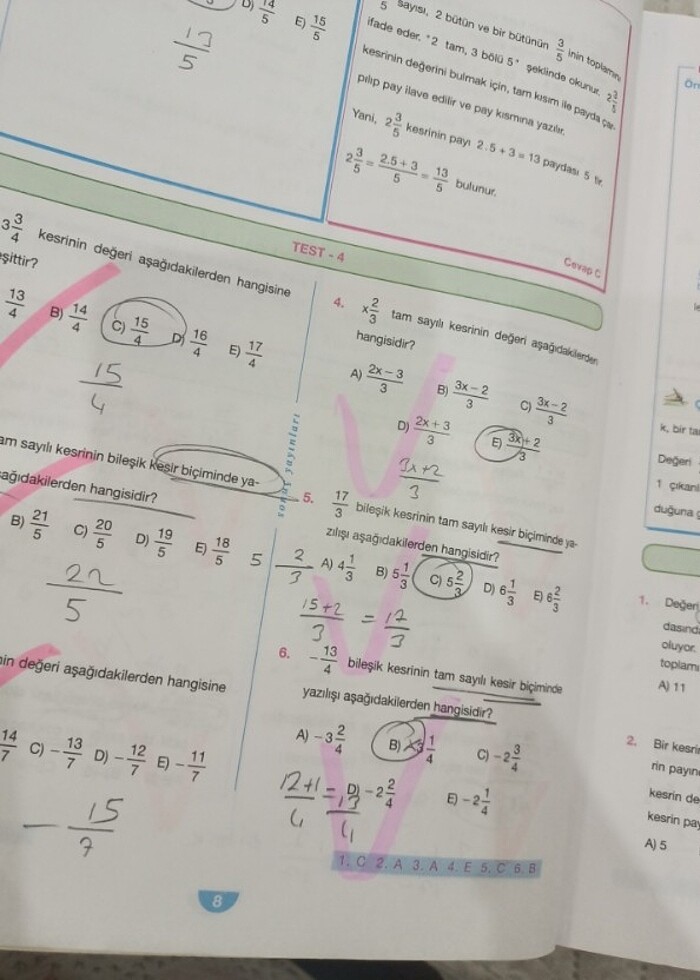 D) 14/5 E) 15/5
13/5
5 sayısı, 2 bütün ve bir bütünün 3/5 inin toplamını
ifade eder. "2 tam, 3 bölü 5" şeklinde okunur. 2 3/5
kesrinin değerini bulmak için, tam kısım ile payda çar-
pılıp pay ilave edilir ve pay kısmına yazılır.
Yani, 2 3/5 kesrinin payı 2.5 + 3 = 13 paydası 5 tir.
2 3/5 = 2.5 + 3/5 = 13/5 bulunur.
Cevap C
TEST - 4
3 3/4 kesrinin değeri aşağıdakilerden hangisine
şittir?
13/4 B) 14/4 C) 15/4 D) 16/4 E) 17/4
15/4
am sayılı kesrinin bileşik kesir biçiminde ya-
ağıdakilerden hangisidir?
B) 21/5 C) 20/5 D) 19/5 E) 18/5
22/5
nin değeri aşağıdakilerden hangisine
14/7 C) -13/7 D) -12/7 E) -11/7
- 15/7
sonuç yayınları
4. x 2/3 tam sayılı kesrinin değeri aşağıdakilerden
hangisidir?
A) 2x - 3/3 B) 3x - 2/3 C) 3x - 2/3
D) 2x + 3/3 E) 3x + 2/3
3x+2/3
5. 17/3 bileşik kesrinin tam sayılı kesir biçiminde ya-
zılışı aşağıdakilerden hangisidir?
5 2/3 A) 4 1/3 B) 5 1/3 C) 5 2/3 D) 6 1/3 E) 6 2/3
15+2/3 = 17/3
6. -13/4 bileşik kesrinin tam sayılı kesir biçiminde
yazılışı aşağıdakilerden hangisidir?
A) -3 2/4 B) -3 1/4 C) -2 3/4
D) -2 2/4 E) -2 1/4
12+1/4 = 13/4
1. C 2. A 3. A 4. E 5. C 6. B
8
k, bir ta
Değeri
1 çıkarı
duğuna
1. Değeri
dasında
oluyor.
toplamı
A) 11
2. Bir kesri
rin payın
kesrin de
kesrin pay
A) 5